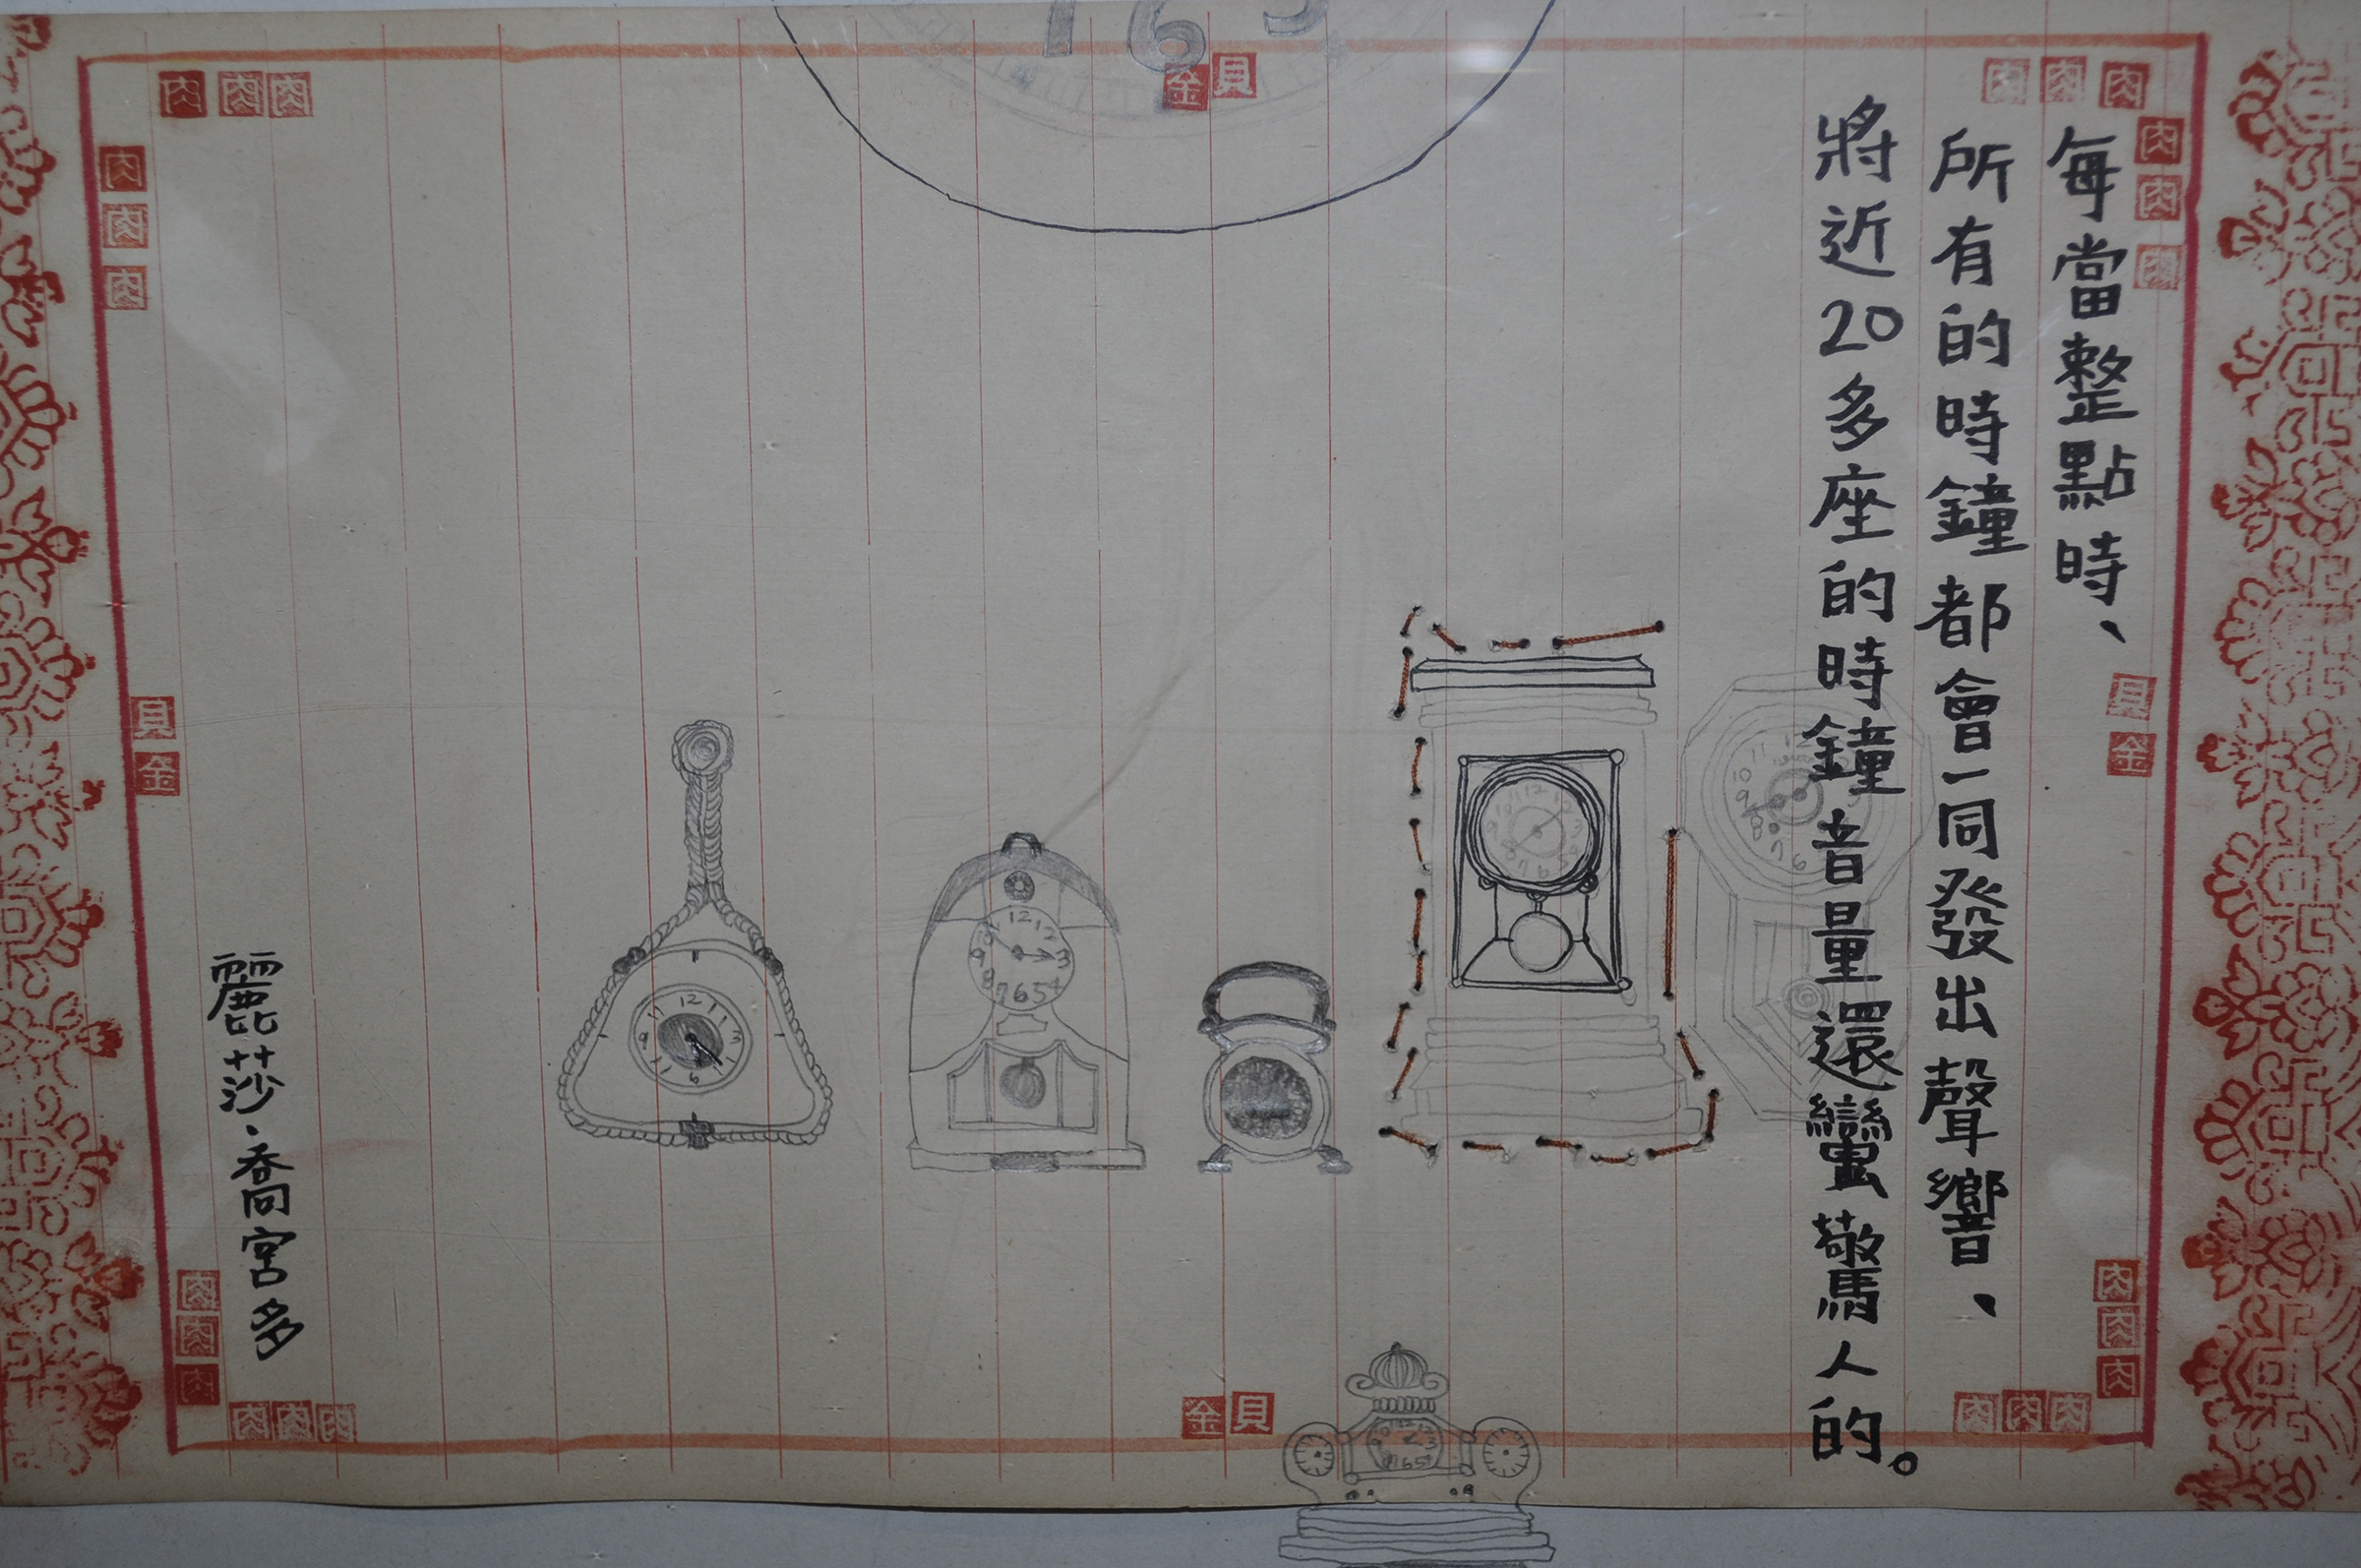 每當整點時、
所有的時鐘都會一同發出聲響、
將近20多座的時鐘音量還蠻驚人的。
麗莎·喬宮多